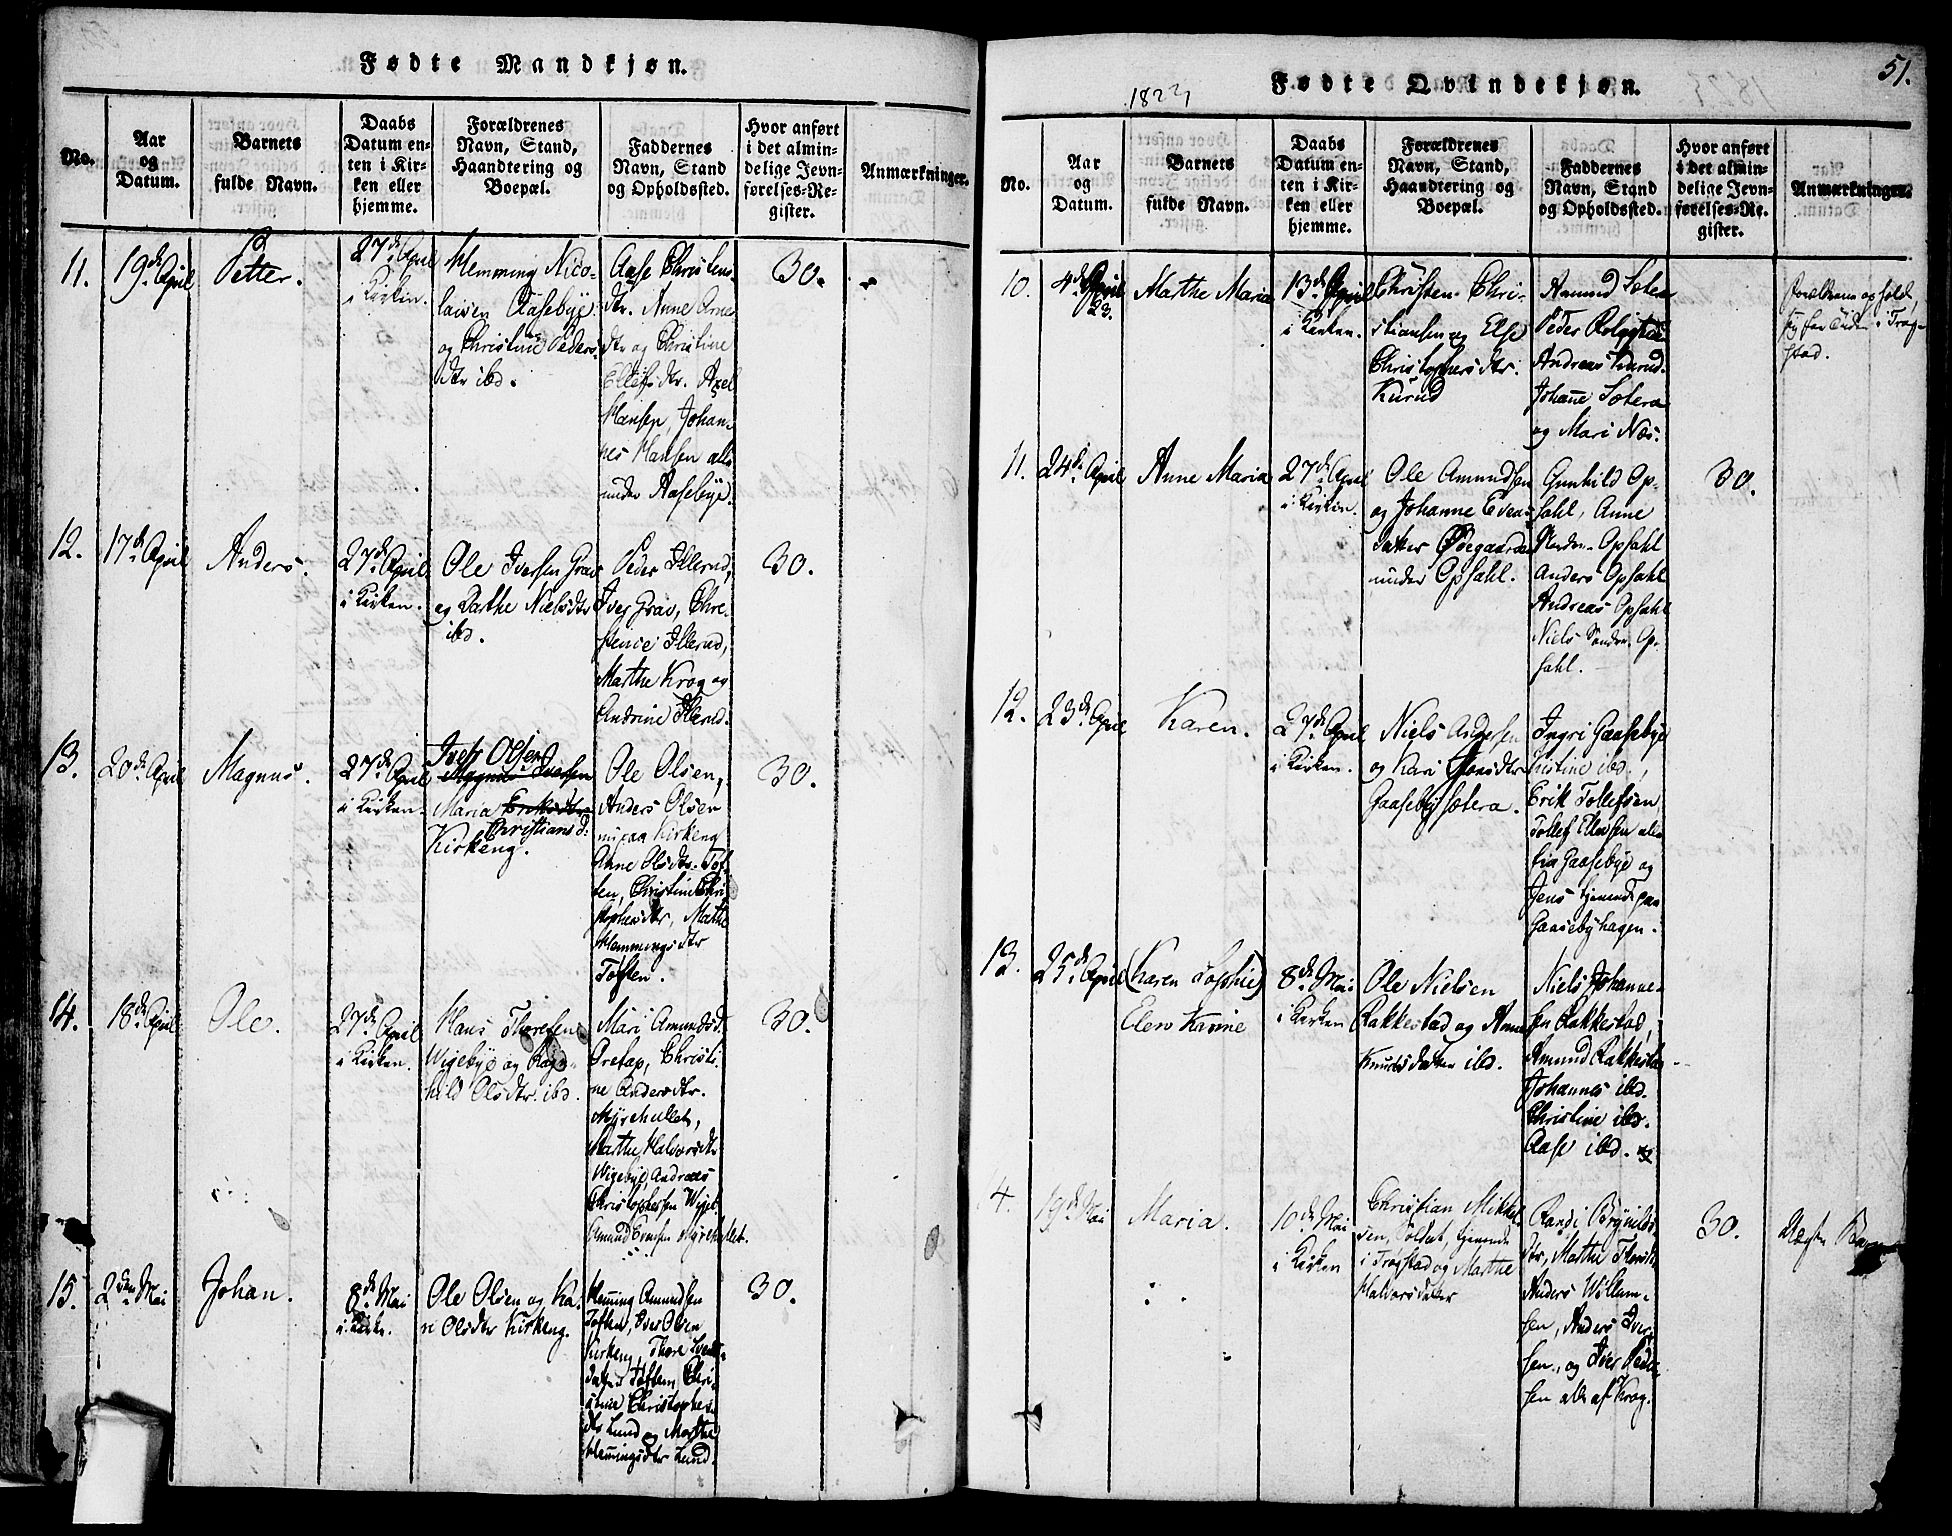 Fødte Mandkjøn.
No.
Aar
og
Datum.
Barnets
fulde Navn.
Daabs
Datum en-
ten i Kir-
ken eller
hjemme.
Forældrenes
Navn, Stand,
Haandtering og
Boepæl.
Faddernes
Navn, Stand
og Opholdssted.
Hvor anført
i det almin-
delige Jevn-
førelses-Re-
gister.
Anmærkninger.
11.
19de April
Petter.
27de April
i Kirken.
Hemming Nico-
laisen Aasebye
og Christine Peders-
dtr ibd.
Aase Christens-
dtr. Anne Arne
dtr og Christine
Ellefsdtr. Axel
Hansen, Johan-
nes Hansen alle
under Aasebye.
30.
12.
17de April
Anders.
27de April
i Kirken.
Ole Iversen Grav
og Dorthe Nielsdtr
ibd.
Peder Illerud,
Iver Grav, Chri-
stence Illerud,
Marthe Krog og
Andrine Illerud.
30.
13.
20de April
Magnus.
27de April
i Kirken.
Iver Olsen
Magnus Iversen
Maria
Christiansd:
Kirkeng.
Ole Olsen,
Anders Olsen
Kirkeng
Anne Olsdtr. Tof-
ten, Christine Chri-
stophersdtr, Marthe
Hemmingsdtr
Toften.
30.
14.
18de April
Ole.
27de April
i Kirken.
Hans Thoresen
Wigebye og Ragn-
hild Olsdtr. ibd.
Mari Amundsd.
Oretap, Christi-
ne Andersdtr.
Myrehullet,
Marthe Halvorsdtr
Wigebye, Andreas
Christophersen Wigeb.
Amund Evensen Myrehullet.
30.
15.
2den Mai
Johan.
8de Mai
i Kirke.
Ole Olsen og Ka-
ri Olsdtr Kirkeng.
Hemming Amundsen
Toften, Iver Olsen
Kirkeng, Thore Svend-
Toften, Chri-
stine Christophers-
dtr Lund og Marthe
Hemmingsdtr Lund.
30.
51.
1823
Fødte Qvindekjøn.
No.
Aar
og
Datum.
Barnets
fulde Navn.
Daabs
Datum en-
ten i Kir-
ken eller
hjemme.
Forældrenes
Navn, Stand,
Haandtering og
Boepæl.
Faddernes
Navn, Stand
og Opholdssted.
Hvor anført
i det almin-
delige Jevn-
førelses-Re-
gister.
Anmærkninger.
10.
4de April
23.
Marthe Maria
13de April
i Kirken.
Christen Chri-
stiansen og Else
Christophersdtr.
Kurud
Amund Sotera
Peder
Andreas Kurud.
Johanne Sotera
og Mari Næs.
Forældrene opholde
sig for Tiden i Trøg-
stad.
11.
24de April
Anne Maria
27de April
i Kirken.
Ole Amundsen
og Johanne Evens-
datter Ødegaarden
under Opsahl.
Gunhild Op-
sahl, Anne
Opsahl
Anders Opsahl
Andreas Opsahl
Niels Søndr. Op-
sahl.
30.
12.
23de April
Karen.
27de April
i Kirken.
Niels Andersen
og Kari
Gaasebysotera.
Ingri Gaasebye
Kristine ibd.,
Erik Tollefsen
Tollef Ellevsen alle
fra Gaasebye og
Jens tjenende paa
Gaasebyhagen.
13.
25de April
(Karen Sophie)
Elen Karine
8de Mai
i Kirken
Ole Nielsen
Rakkestad og Anne
Knudsdatter ibd.
Niels Johanne-
sen Rakkestad,
Amund Rakkestad
Johannes ibd.
Christine ibd.
Aase ibd.
4.
19de Mai
Maria.
10de Mai
i Kirken
Christian Mikkel-
sen, Soldat, tjenende
i Trøgstad og Marthe
Halvorsdatter
Randi Brynilds-
dtr, Marthe
Anders Willum-
sen, Anders Iver-
sen, og Iver Peder-
sen alle af Krog.
30.
Uægte Barn